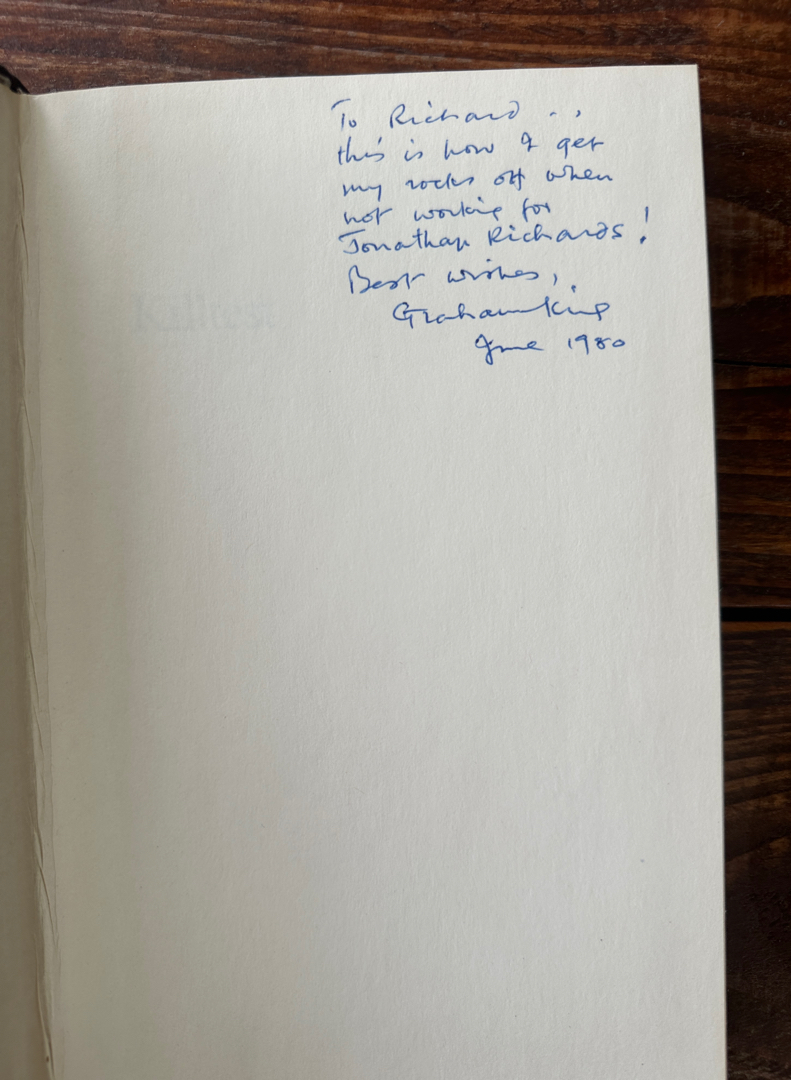 To Richard ..,
this is how I get
my rocks off when
not working for
Jonathan Richards!
Best wishes,
Graham King
June 1980